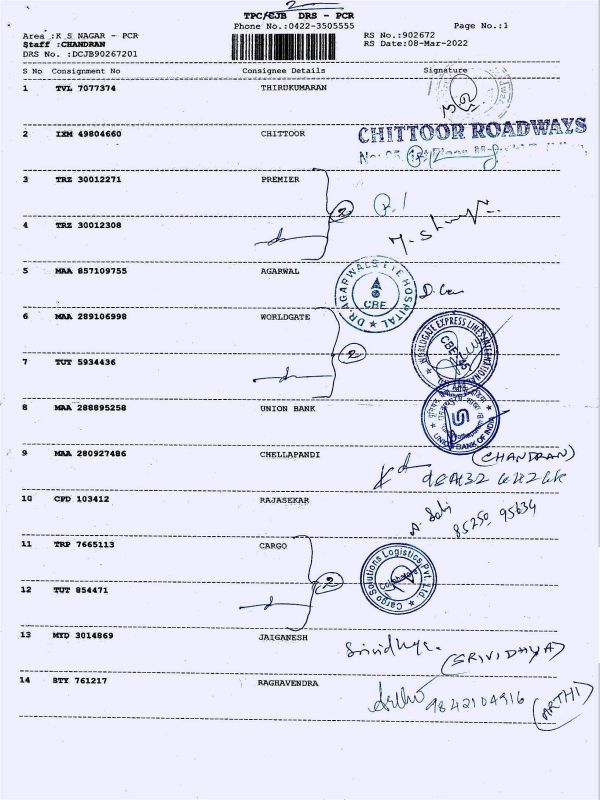 2
TPC/CJB DRS - PCR
Phone No.:0422-3505555 Page No.:1
Area :K S NAGAR - PCR RS No.:902672
Staff :CHANDRAN RS Date:08-Mar-2022
DRS No. :DCJB90267201
S No Consignment No Consignee Details Signature
1 TVL 7077374 THIRDKUMARAN
2 IXM 49804660 CHITTOOR CHITTOOR ROADWAYS
3 TRZ 30012271 PREMIER
2
4 TRZ 30012308
5 MAA 857109755 AGARWAL DR.AGARWALS EYE HOSPITAL CBE
6 MAA 289106998 WORLDGATE WORLDGATE EXPRESS LINES INTERNATIONAL CBE-45
2
7 TUT 5934436
8 MAA 288895258 UNION BANK UNION BANK OF INDIA
9 MAA 280927486 CHELLAPANDI (CHANDRAN)
10 CPD 103412 RAJASEKAR 85250 95634
11 TRP 7665113 CARGO Cargo Solutions Logistics Pvt. Ltd. Coimbatore
2
12 TUT 854471
13 MYD 3014869 JAIGANESH Srividhya. (SRIVIDHYA)
14 STY 761217 RAGHAVENDRA 9842104916 (ARTHI)